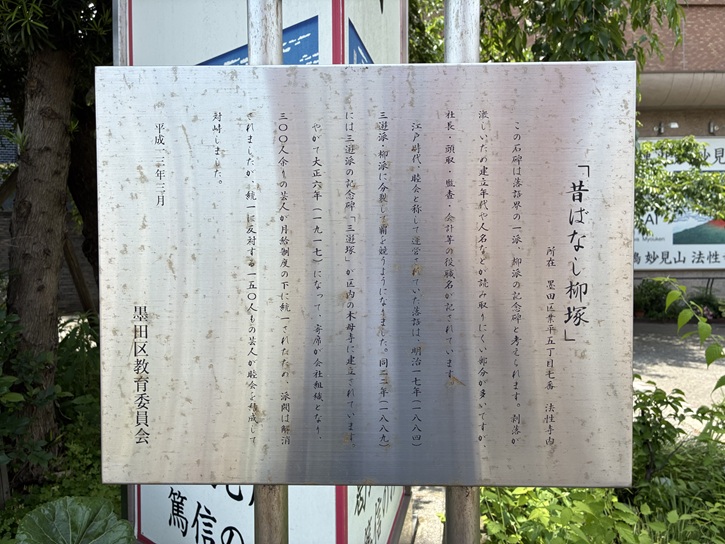 「昔ばなし柳塚」
所在 墨田区業平五丁目七番 法性寺内
この石碑は落語界の一派、柳派の記念碑と考えられます。剥落が
激しいため建立年代や人名などが読み取りにくい部分が多いですが、
社長・頭取・監査・会計等の役職名が記されています。
江戸時代、睦会と称して運営されていた落語は、明治一七年(一八八四)
三遊派・柳派に分裂して覇を競うようになりました。同二二年(一八八九)
には三遊派の記念碑「三遊塚」が区内の木母寺に建立されています。
やがて大正六年(一九一七)になって、寄席が会社組織となり、
三〇〇人余りの芸人が月給制度の下に統一されたため、派閥は解消
されましたが、統一に反対する一五〇人もの芸人が睦会を結成して
対峙しました。
平成一二年三月
墨田区教育委員会
篤信の
妙見山 法性